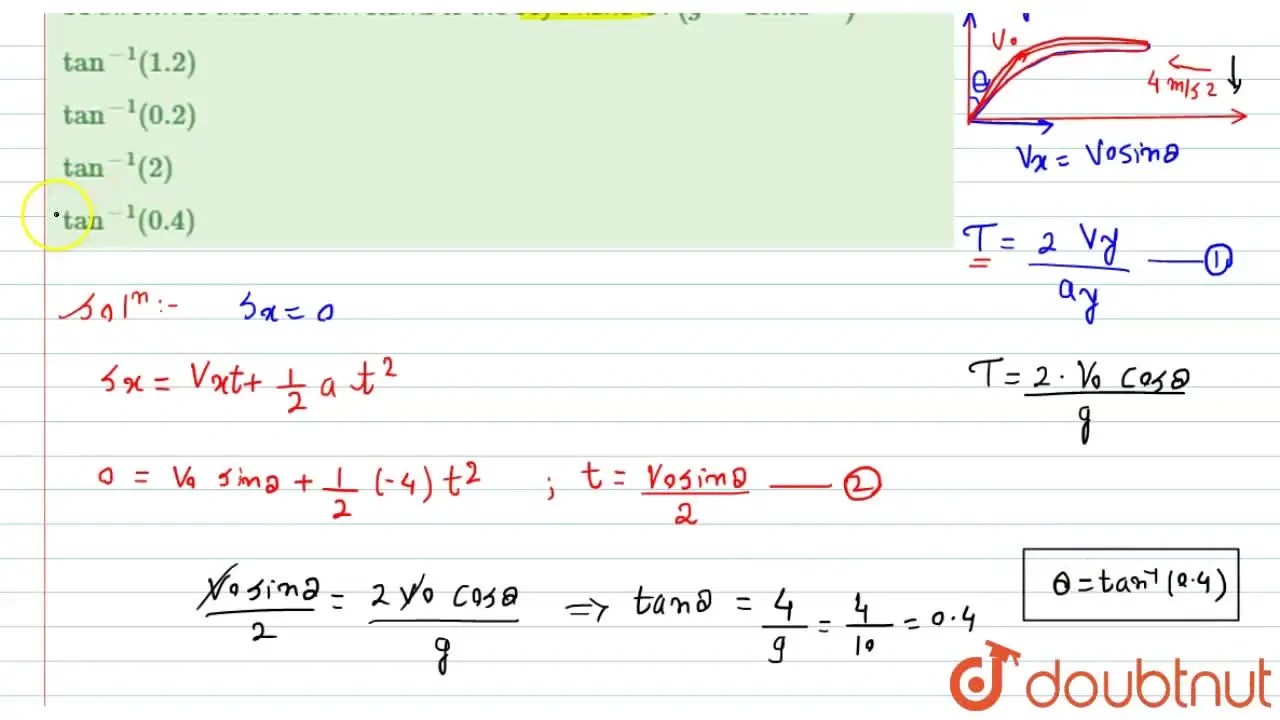 tan⁻¹(1.2)
tan⁻¹(0.2)
tan⁻¹(2)
tan⁻¹(0.4)
V₀
θ
4 m/s2
Vx = V0sinθ
T = 2 Vy / ay —— ①
Solⁿ :- Sx = 0
Sx = Vxt + 1/2 a t²
T = 2 · V₀ cosθ / g
0 = V₀ sinθ + 1/2 (-4) t² ; t = V0sinθ / 2 —— ②
V0sinθ / 2 = 2 V0 cosθ / g ⇒ tanθ = 4/g = 4/10 = 0.4
θ = tan⁻¹(0.4)
doubtnut